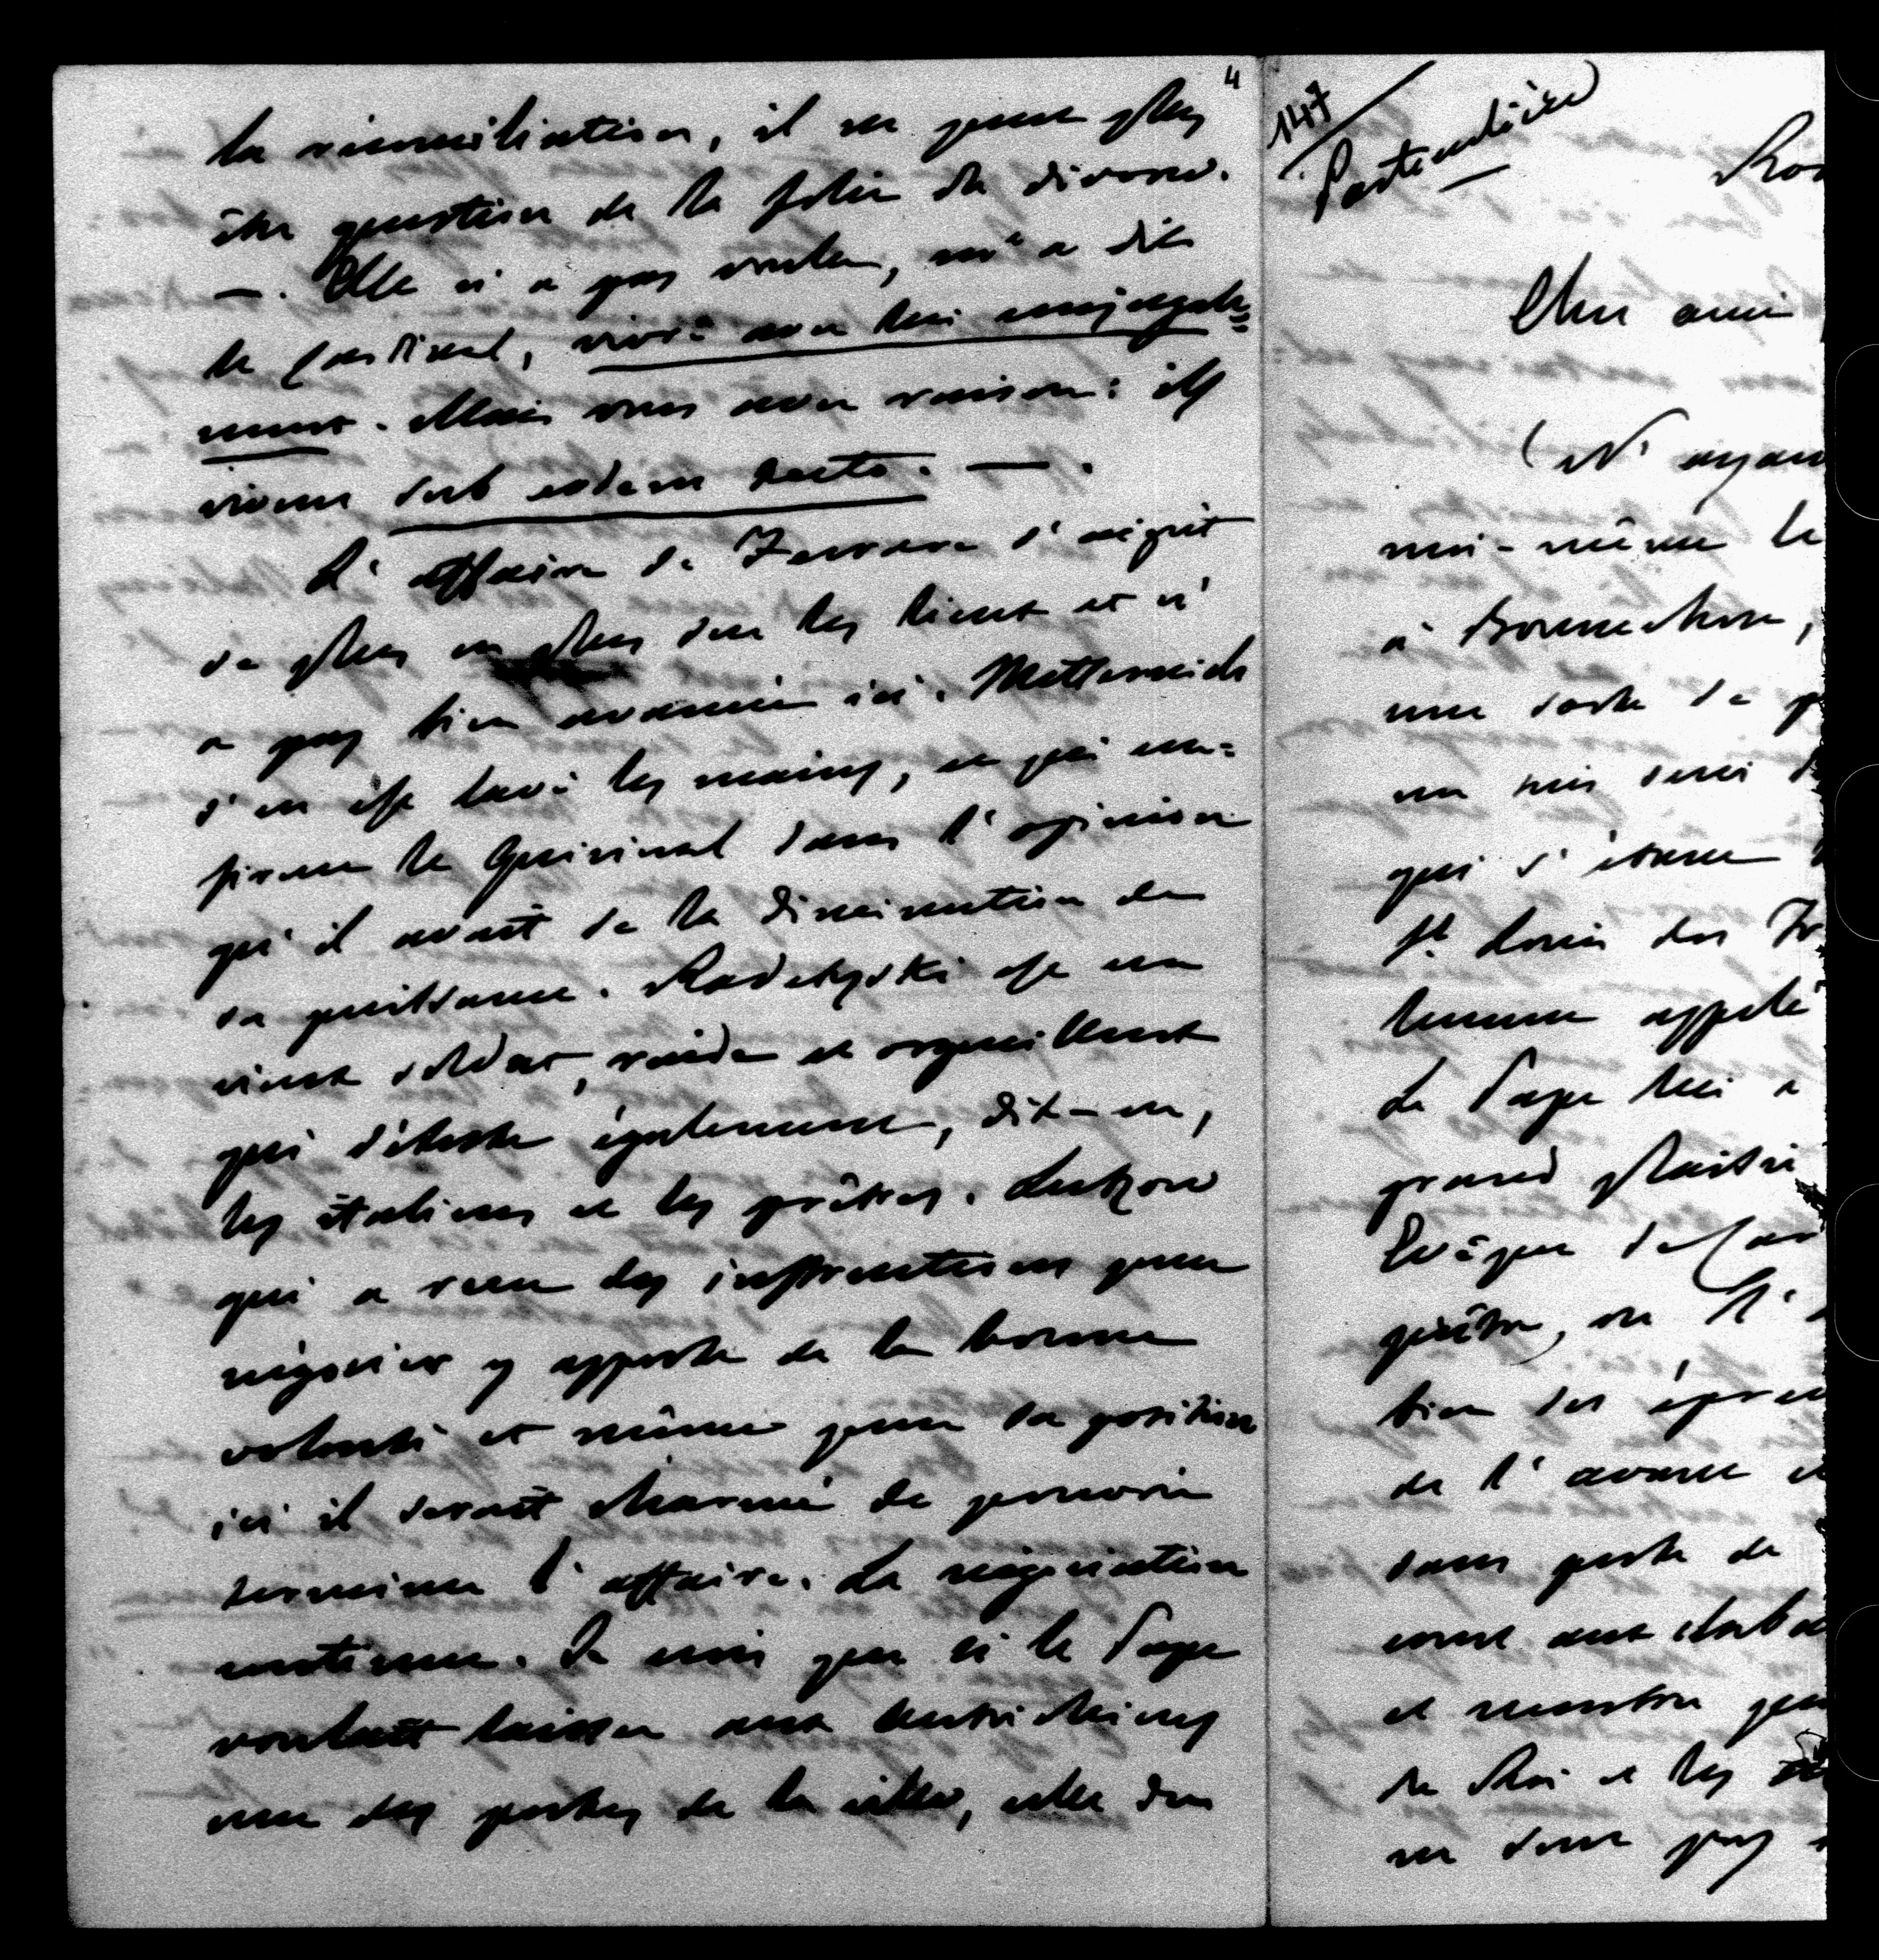 4
la réconciliation, il ne peut plus
être question de la folie du divorce.
—. Elle n'a pas voulu, m'a dit
le Cardinal, vivre avec lui conjugale=
ment. Mais vous avez raison: ils
vivent sub eodem tecto. —.
L'affaire de Ferrare s'aigrit
de plus en plus sur les lieux et n'
a pas bien avancé ici. Metternich
s'en est lavé les mains, ce qui con=
firme le Quirinal dans l'opinion
qu'il avait de la diminution de
sa puissance. Radetzski est un
vieux soldat, raide et orgueilleux
qui déteste également, dit-on,
les italiens et les prêtres. Lutzow
qui a reçu des instructions pour
négocier y apporte de la bonne
volonté et même pour sa position
ici il serait charmé de pouvoir
terminer l'affaire. La négociation
continue. Je crois que si le Pape
voulait laisser aux Autrichiens
une des portes de la ville, celle du
147
Particulière
Ro
Cher ami
(N'ayan
moi-même le
à Bonnechose,
une sorte de p
en suis servi
qui s'étaient
St. Louis des Fr
homme appelé
Le Pape lui a
grand plaisir
Evêque de Car
prêtre, on l'
bien des épreu
de l'avance
dans poste de
et montre que
le Roi et les
ne sont pas